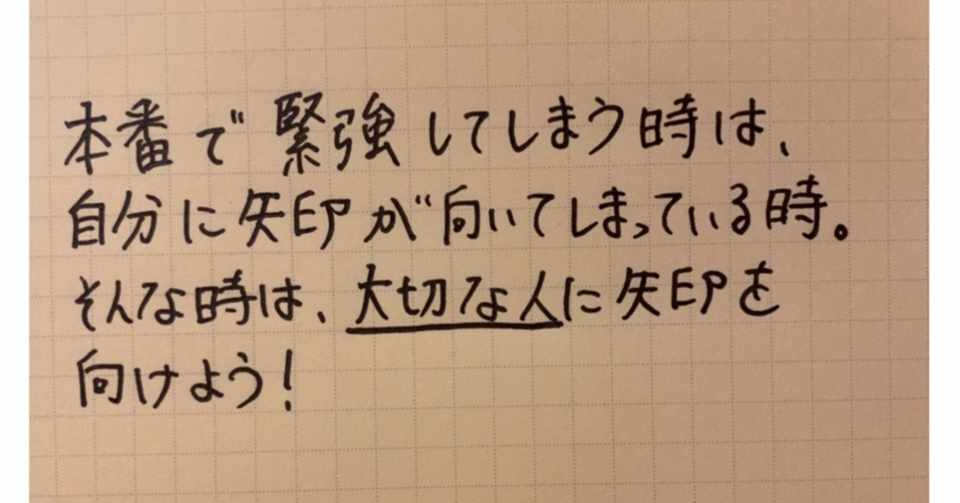 本番で緊強してしまう時は、
自分に矢印が向いてしまっている時。
そんな時は、大切な人に矢印を
向けよう!